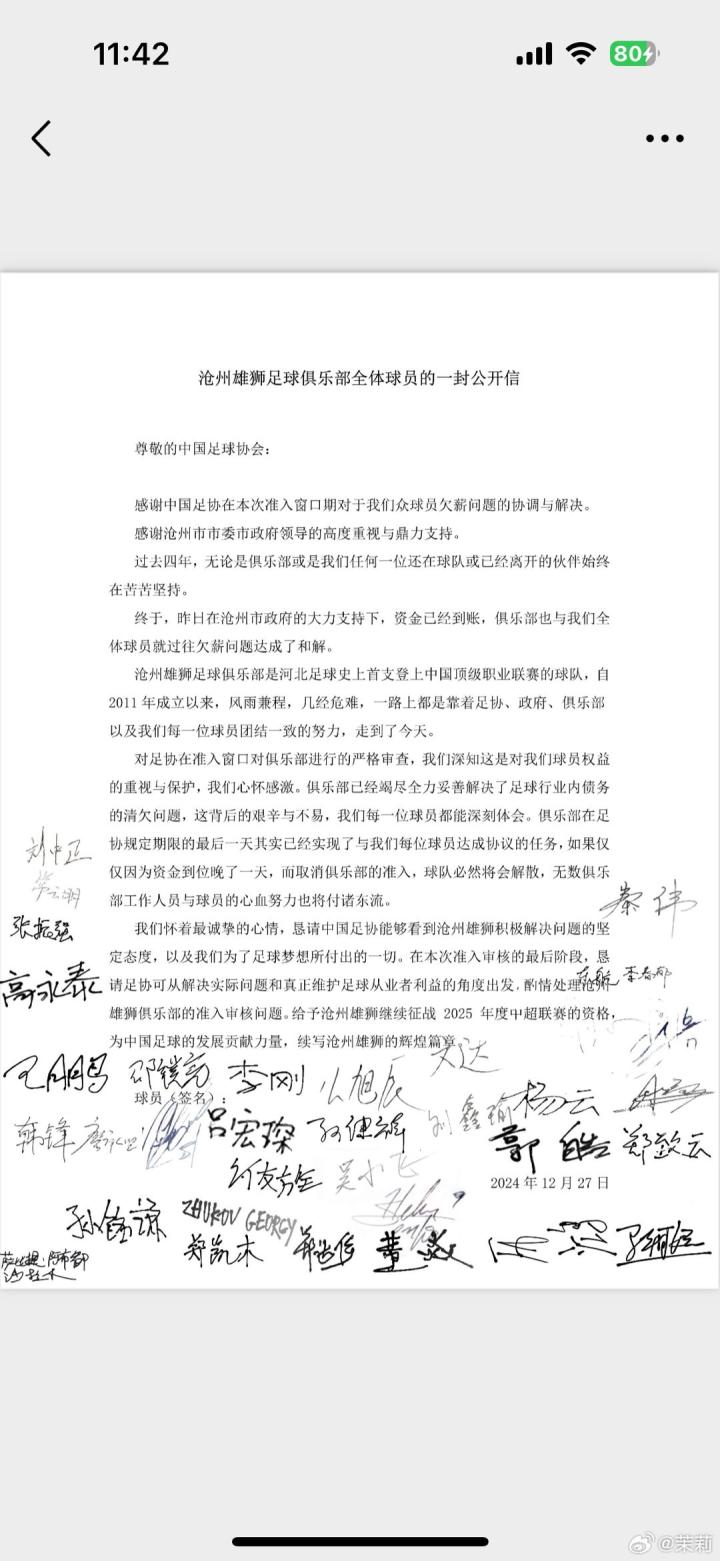 11:42
80
沧州雄狮足球俱乐部全体球员的一封公开信
尊敬的中国足球协会：
感谢中国足协在本次准入窗口期对于我们众球员欠薪问题的协调与解决。
感谢沧州市市委市政府领导的高度重视与鼎力支持。
过去四年，无论是俱乐部或是我们任何一位还在球队或已经离开的伙伴始终
在苦苦坚持。
终于，昨日在沧州市政府的大力支持下，资金已经到账，俱乐部也与我们全
体球员就过往欠薪问题达成了和解。
沧州雄狮足球俱乐部是河北足球史上首支登上中国顶级职业联赛的球队，自
2011年成立以来，风雨兼程，几经危难，一路上都是靠着足协、政府、俱乐部
以及我们每一位球员团结一致的努力，走到了今天。
对足协在准入窗口对俱乐部进行的严格审查，我们深知这是对我们球员权益
的重视与保护，我们心怀感激。俱乐部已经竭尽全力妥善解决了足球行业内债务
的清欠问题，这背后的艰辛与不易，我们每一位球员都能深刻体会。俱乐部在足
协规定期限的最后一天其实已经实现了与我们每位球员达成协议的任务，如果仅
仅因为资金到位晚了一天，而取消俱乐部的准入，球队必然将会解散，无数俱乐
部工作人员与球员的心血努力也将付诸东流。
我们怀着最诚挚的心情，恳请中国足协能够看到沧州雄狮积极解决问题的坚
定态度，以及我们为了足球梦想所付出的一切。在本次准入审核的最后阶段，恳
请足协可从解决实际问题和真正维护足球从业者利益的角度出发，酌情处理沧州
雄狮俱乐部的准入审核问题。给予沧州雄狮继续征战 2025 年度中超联赛的资格，
为中国足球的发展贡献力量，续写沧州雄狮的辉煌篇章。
刘中正
张振强
秦伟
高永泰
王朋鹏
邵镤亮
李刚
么旭辰
文达
杨云
球员（签名）：
韩锋
吕宏琛
孙健辉
刘鑫瑜
郭皓
郑致云
吴小飞
2024年12月27日
ZHUKOV GEORGY
郑凯木
@茉莉